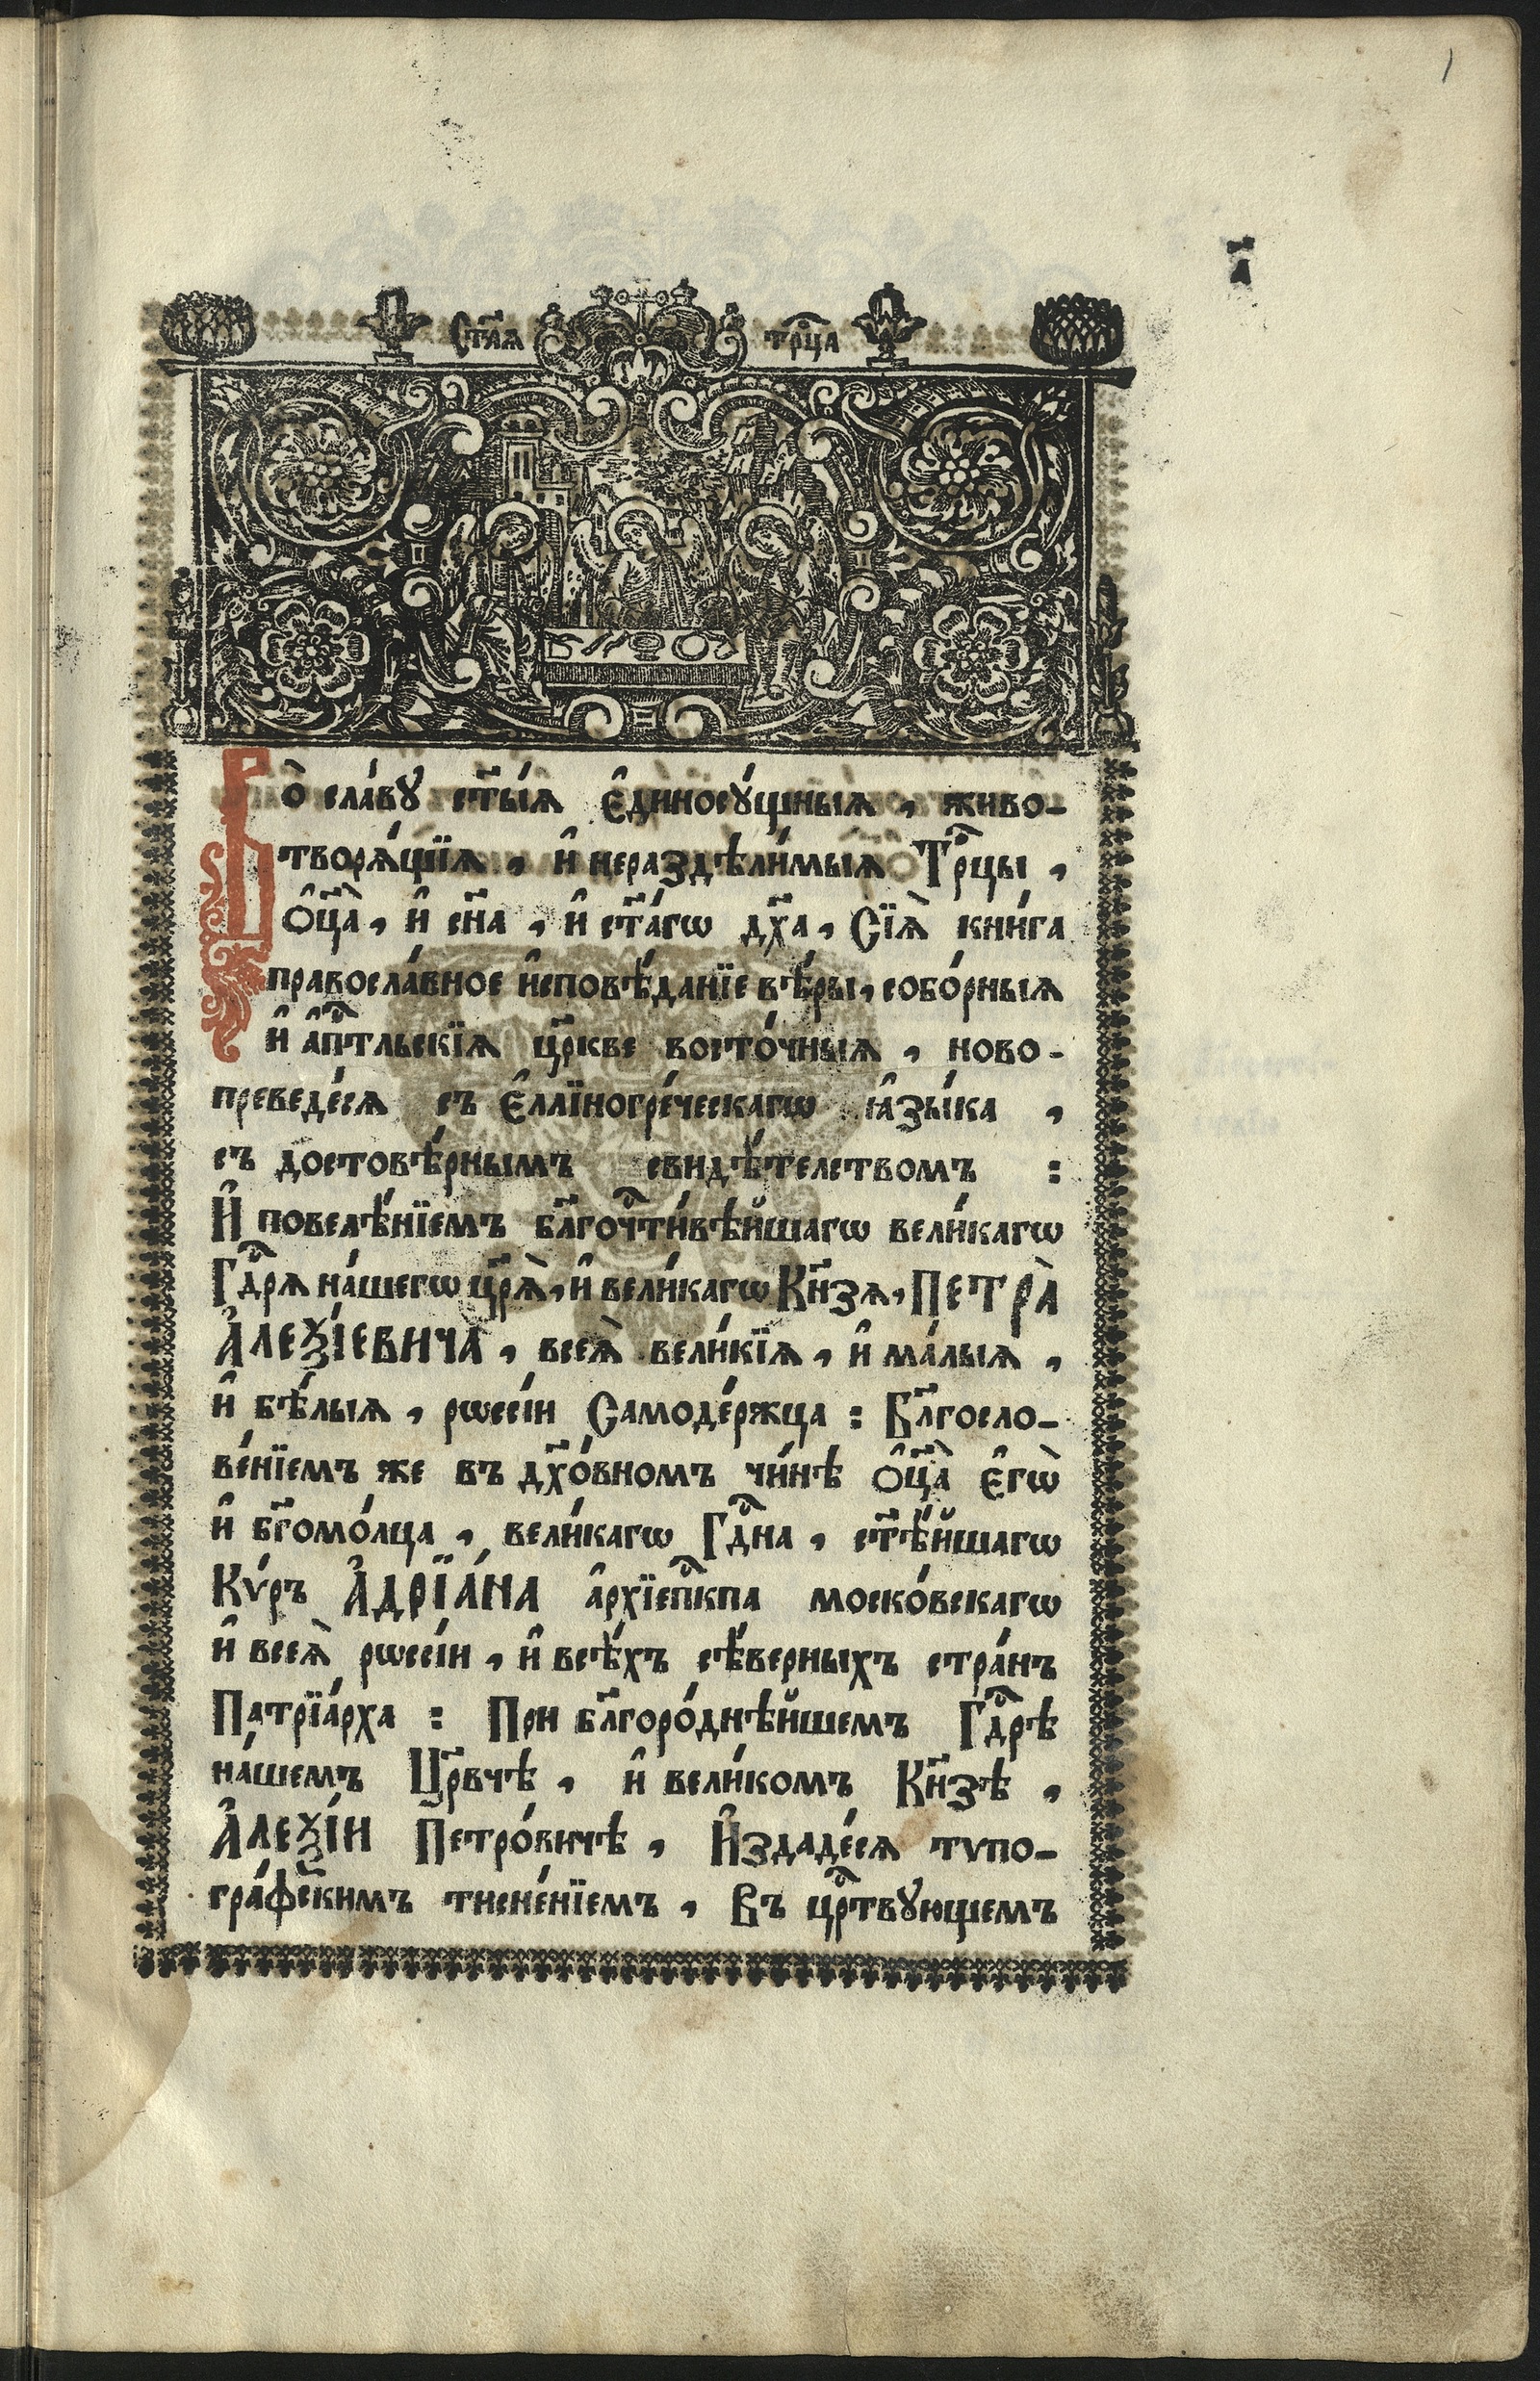 1
а҃
Ст҃ая трⷪ҇ца
Во̀ сла́вꙋ ст҃ы́ѧ є҆диносꙋ́щныѧ, живо-
творѧ́щїѧ, и҆ нераздѣли́мыѧ Трⷪ҇цы,
Ѻ҆ц҃а̀, и҆ сн҃а, и҆ ст҃а́гѡ дх҃а, Сїѧ̀ кни́га
правосла́вное и҆сповѣ́данїе вѣ́ры, собо́рныѧ
и҆ а҆пⷭ҇тльскїѧ цр҃кве восто́чныѧ, ново-
преведе́сѧ съ є҆ллїногре́ческагѡ ꙗ҆зы́ка,
съ достовѣ́рнымъ свидѣ́телствомъ :
И҆ повелѣ́нїемъ бл҃гочⷭ҇ти́вѣйшагѡ вели́кагѡ
Гдⷭ҇рѧ на́шегѡ цр҃ѧ̀, и҆ вели́кагѡ Кн҃зѧ, ПЕТРА̀
А҆ЛЕѮІ́ЕВИЧА, всеѧ̀ вели́кїѧ, и҆ ма́лыѧ,
и҆ бѣ́лыѧ, рѡссі́и Самоде́ржца : Бл҃госло-
ве́нїемъ же въ дх҃о́вномъ чи́нѣ ѻ҆ц҃а̀ є҆гѡ̀
и҆ бг҃омо́лца, вели́кагѡ Гдⷭ҇на, ст҃ѣ́йшагѡ
Кѵ́ръ А҆ДРЇА́НА а҆рхїепⷭ҇кпа моско́вскагѡ
и҆ всеѧ̀ рѡссі́и, и҆ всѣ́хъ сѣ́верныхъ стра́нъ
Патрїа́рха : При бл҃горо́днѣйшемъ Гдⷭ҇рѣ
на́шемъ Цр҃вчѣ, и҆ вели́комъ Кн҃зѣ,
А҆ЛЕѮІ́И Петро́вичѣ, И҆здаде́сѧ тѵпо-
гра́фскимъ тисне́нїемъ, Въ црⷭ҇твꙋющемъ